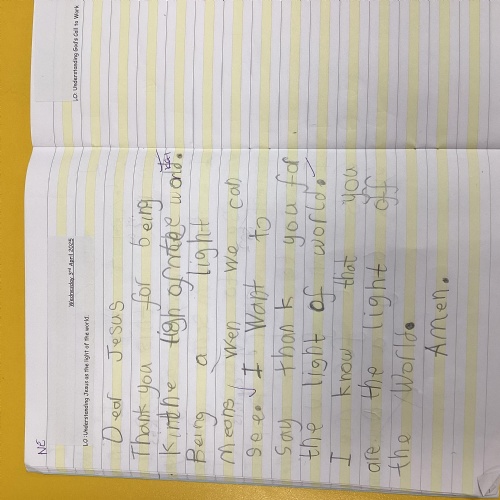 NE
Wednesday 2nd April 2025
LO: Understanding Jesus as the light of the world.
Dear Jesus
Thank you for being
the world.
Being a light
means when we can
see. I want to
say thank you for
the light of world.
I know that you
are the light off
the world.
Amen.
LO: Understanding God's Call to Work